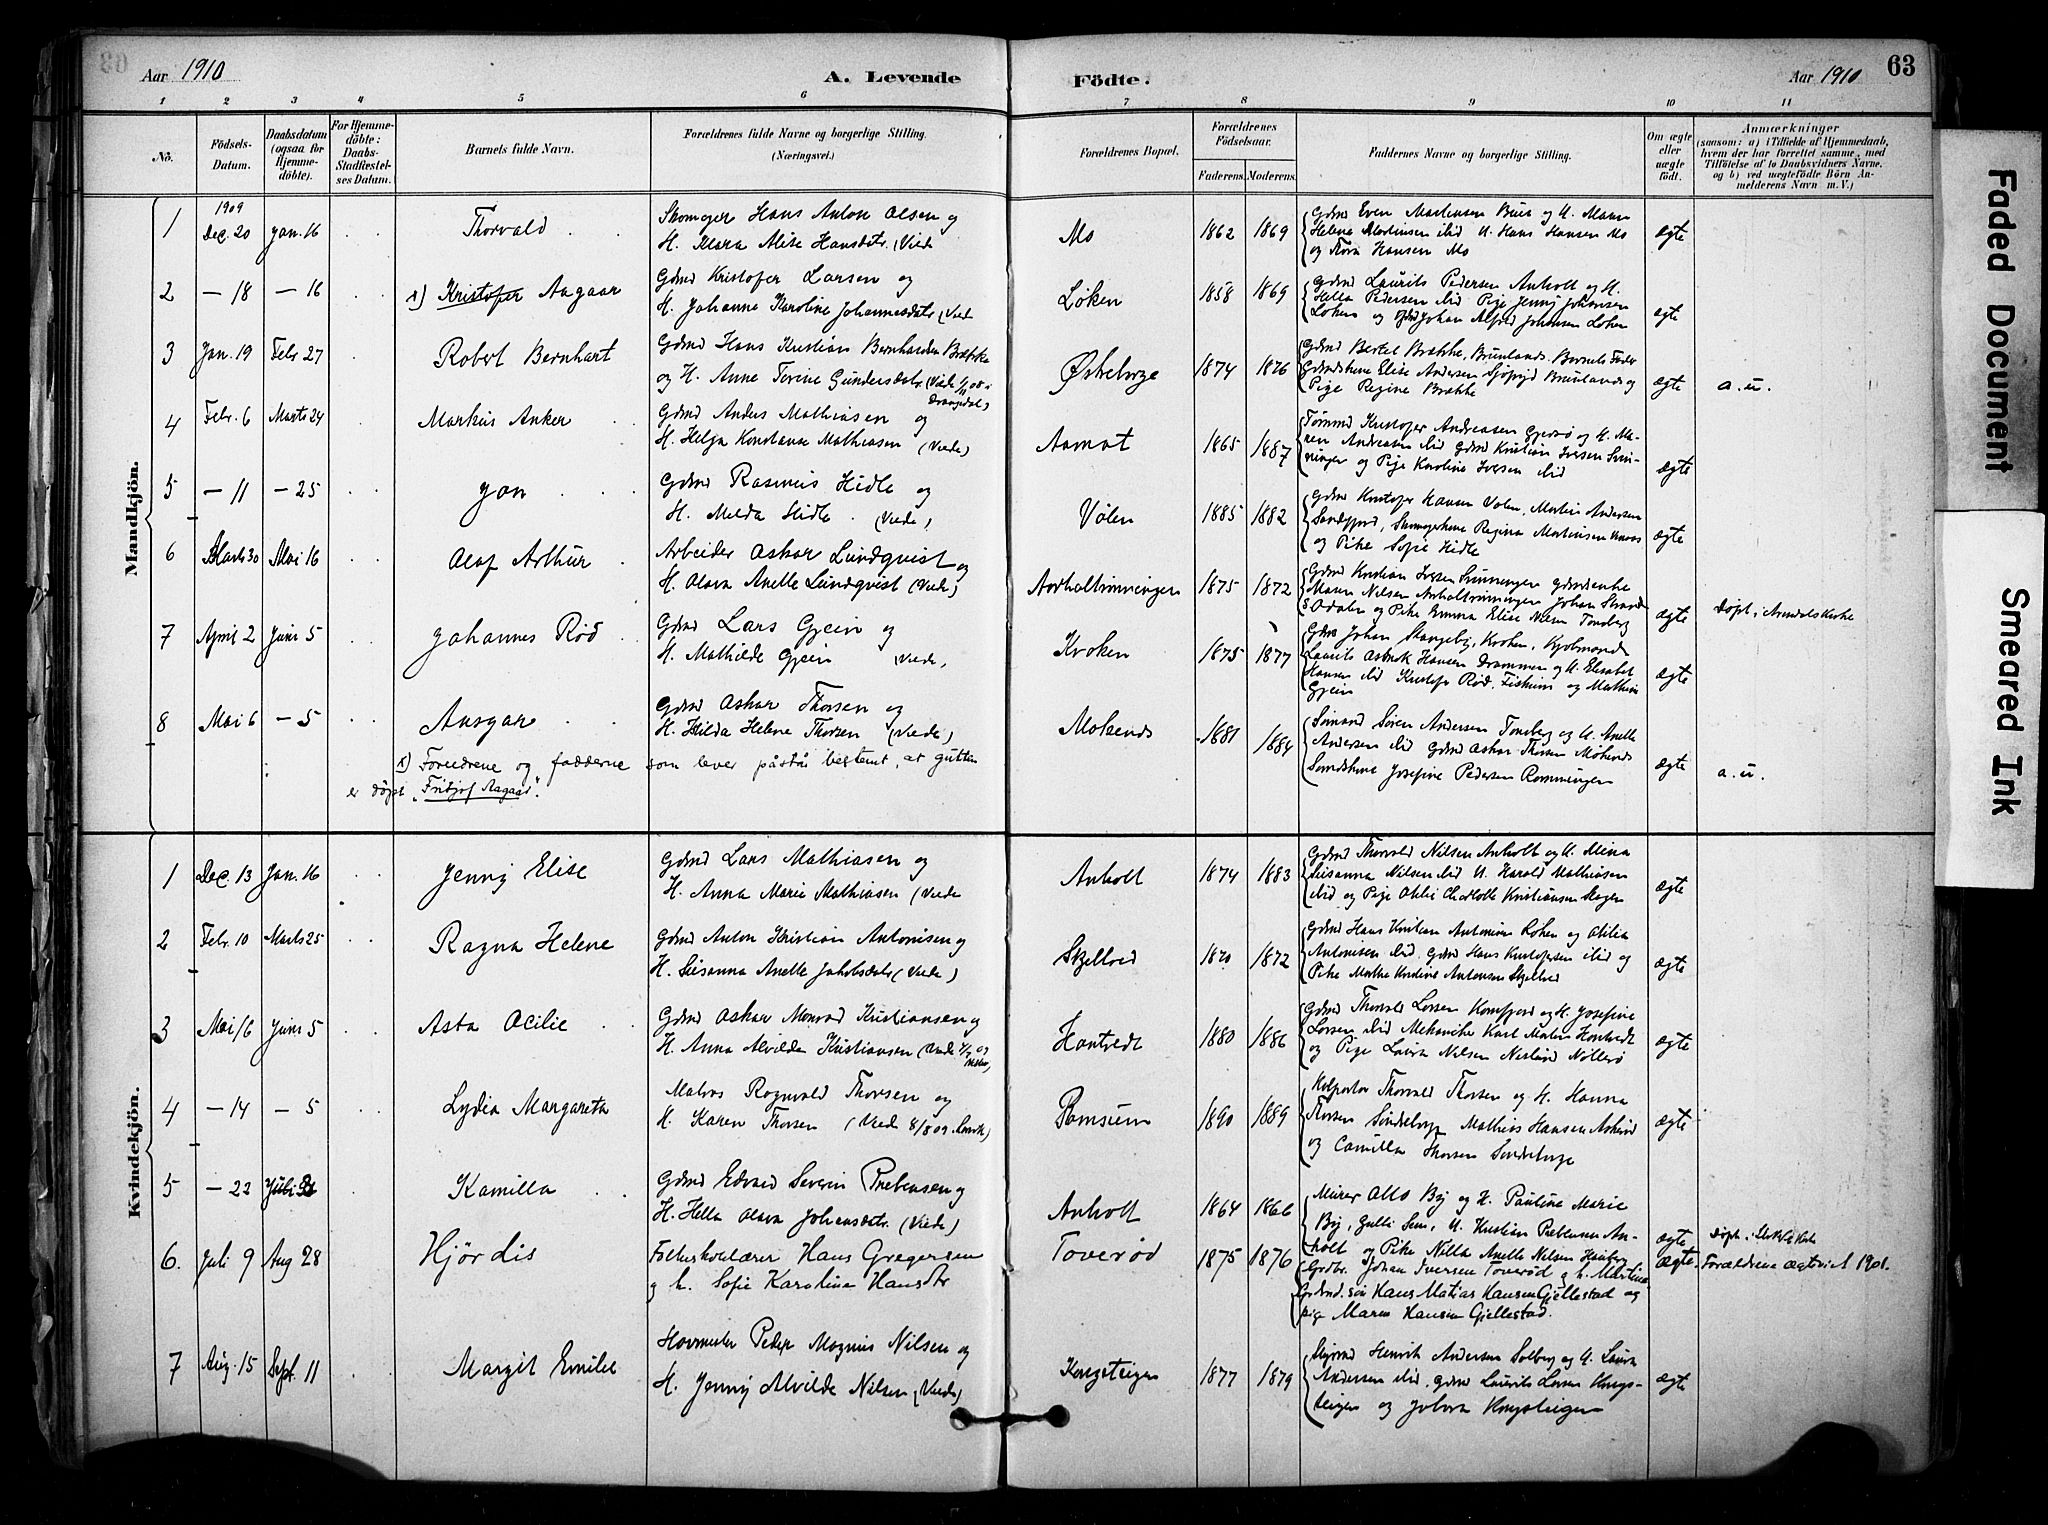 Aar 1910
A. Levende
Födte.
Aar 1910
63
1 2 3 4 5 6 7 8 9 10 11
No.
Födsels-Datum.
Daabsdatum (ogsaa for Hjemmedöbte).
For Hjemmedöbte: Daabs-Stadfæstelses Datum.
Barnets fulde Navn.
Forældrenes fulde Navne og borgerlige Stilling. (Næringsvei.)
Forældrenes Bopæl.
Forældrenes Födselsaar.
Faderens. Moderens.
Faddernes Navne og borgerlige Stilling.
Om ægte eller uægte födt.
Anmærkninger
(saasom: a) i Tilfælde af Hjemmedaab, hvem der har forrettet samme, med Tilföielse af to Daabsvidners Navne, og b) ved uægtefödte Börn Anmelderens Navn m. V.)
Mandkjön.
1 1909 Dec. 20 Jan. 16 Thorvald
Skomager Hans Anton Olsen og
H. Klara Alise Hansdatr. (Viede
Mo 1862 1869
Gdmd Even Martinsen Bue og H. Maren
Helene Martinsen ibid U. Hans Hansen Mo
og Thora Hansen Mo
ægte
2 — 18 — 16 x) Kristofer Aagaar
Gdmd Kristofer Larsen og
H. Johanne Karoline Johannesdatr (Viede
Løken 1858 1869
Gdmd Laurits Pedersen Anholt og H.
Hella Pedersen ibid Pige Jenny Johansen
Løken og Gdmd Johan Alfred Johansen Løken
ægte
3 Jan. 19 Febr 27 Robert Bernhart
Gdmd Hans Kristian Bernhardsen Brække
og H. Anne Terine Gundersdatr (Viede 1/11 08 i Drangedal)
Østeborge 1874 1876
Gdmd Bertel Brække, Brunlands. Barnets Fader
Gdmdskone Elise Andersen Brunlands og
Pige Regine Brække
ægte a. u.
4 Febr. 6 Marts 24 Markus Anker
Gdmd Anders Mathiasen og
H. Helga Konstanse Mathiasen (Viede)
Aamot 1865 1887
Tømmd Kristofer Andreasen Gjersø og H. Maren
Andreasen ibid Gdmd Kristian Iversen Svinninger
og Pige Karoline Iversen ibid
ægte
5 — 11 — 25 Jan
Gdmd Rasmus Hidle og
H. Melda Hidle. (Viede)
Vølen 1885 1882
Gdmd Kristofer Hansen Vølen, Martin Andersen
Sandefjord, Skomagerkone Regina Martinsen
og Pike Sofie Hidle
ægte
6 Marts 30 Mai 16 Olaf Arthur
Arbeider Oskar Lundqvist og
H. Olava Anette Lundqvist (Viede)
Anholtrønningen 1875 1872
Gdmd Kristian Iversen Svinningen gdmdenke
Maren Nilsen Anholtrønningen Johan Strand
S. Odalen og Pike Emma Elise Nilsen Tønsberg
ægte Døpt i Arendals Kirke
7 April 2 Juni 5 Johannes Rød
Gdmd Lars Gjein og
H. Mathilde Gjein (Viede,
Kroken 1875 1877
Gdmd Johan Stangeby, Kroken, Kjøbmand
Laurits Asbnok Hansen Drammen og H. Elisabet
Hansen ibid Kristofer Rød, Fiskum og Mathias
Gjein
ægte
8 Mai 6 — 5 Ansgar
Gdmd Oskar Thorsen og
H. Hilda Helene Thorsen (Viede)
Molsends 1881 1884
Sømand Søren Andersen Tønsberg og H. Anette
Andersen ibid Gdmd Oskar Thorsen Molsends
Smedskone Josefine Pedersen Rømmingen
ægte a. u.
x) Foreldrene og fadderne som lever påstår bestemt, at gutten
er døpt "Fritjof Aagaad".
Kvindekjön.
1 Dec. 13 Jan. 16 Jenny Elise
Gdmd Lars Mathiasen og
H. Anna Marie Mathiasen (Viede
Anholt 1874 1883
Gdmd Thorvald Nilsen Anholt og H. Mina
Susanna Nilsen ibid U. Harald Mathiasen
ibid og Pige Otilie Charlotte Kristiansen Skogen
ægte
2 Febr. 10 Marts 25 Ragna Helene
Gdmd Anton Kristian Antonisen og
H. Susanna Anette Jakobsdatr (Viede)
Skjelbred 1870 1872
Gdmd Hans Kristian Antonisen Løken og Otilia
Antonisen ibid. Gdmd Hans Kristofersen ibid og
Pike Marthe Kristine Antonsen Skjelbred
ægte
3 Mai 16 Juni 5 Asta Otilie
Gdmd Oskar Monrad Kristiansen og
H. Anna Alvilde Kristiansen (Viede 09
Hontvedt 1880 1886
Gdmd Thorvald Larsen Kamfjord og H. Josefine
Larsen ibid Mekaniker Karl Malin Hontvedt
og Pige Laura Nilsen Nøtterø
ægte
4 — 14 — 5 Lydia Margareta
Matros Ragnvald Thorsen og
H. Karen Thorsen (Viede 8/8 09. Larvik)
Ramsum 1890 1889
Kolportør Thorvald Thorsen og H. Hanna
Thorsen Søndeborge Mathias Hansen Askerød
og Camilla Thorsen Søndeborge
ægte
5 — 22 Juli 31 Kamilla
Gdmd Edvard Severin Prebensen og
H. Hella Olava Johansdatr. (Viede)
Anholt 1864 1866
Murer Otto By og H. Pauline Marie
By, Gulli Sem, U. Kristian Prebensen Anholt
og Pike Nilla Anette Nilsen Haaberg
ægte
6. Juli 9 Aug 28 Hjördis
Folkeskolelærer Hans Gregersen
og h. Sofie Karoline Hansdtr
Toverød 1875 1876
Grdbr. Johan Iversen Toverød og h. Martine
Grdmd. søn Hans Matias Hansen Gjellestad og
pige Maren Hansen Gjellestad.
ægte. Forældrene ægteviet 1901.
7 Aug. 15 Sept. 11 Margit Emilie
Hovmester Peder Magnus Nilsen og
H. Jenny Alvilde Nilsen (Viede)
Kongsteigen 1877 1879
Henrik Andersen Solberg og H. Laura
Andersen ibid. Gdmd Laurits Larsen Kongsteigen
og Jobera Kongsteigen
ægte
Faded Document
Smeared Ink